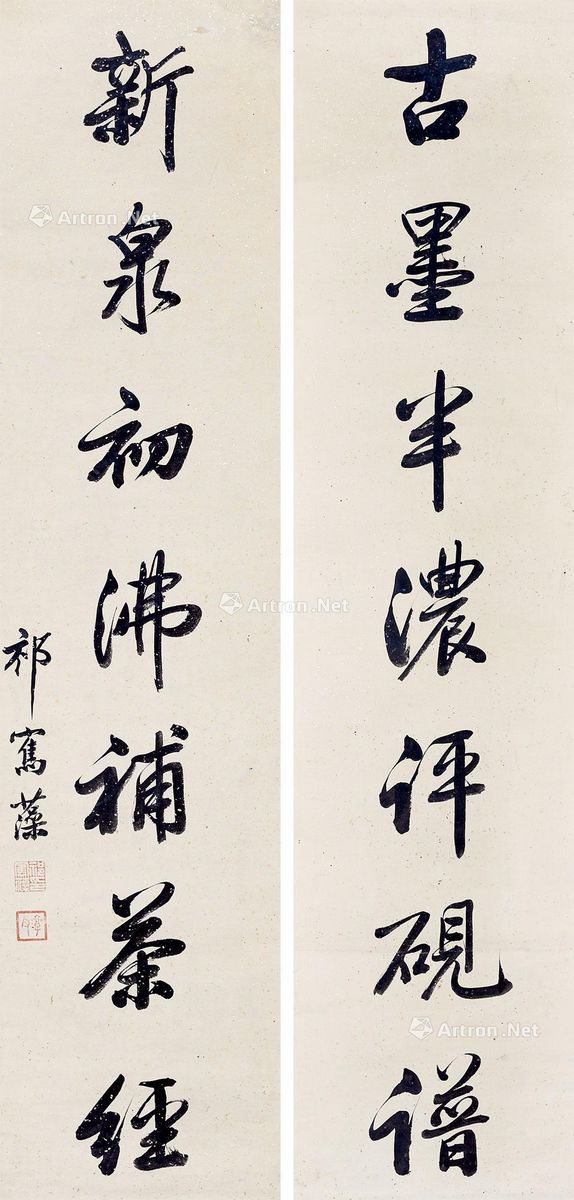 古墨半濃評硯譜
新泉初沸補茶經
祁寯藻
Artron.Net
Artron.Net
Artron.Net